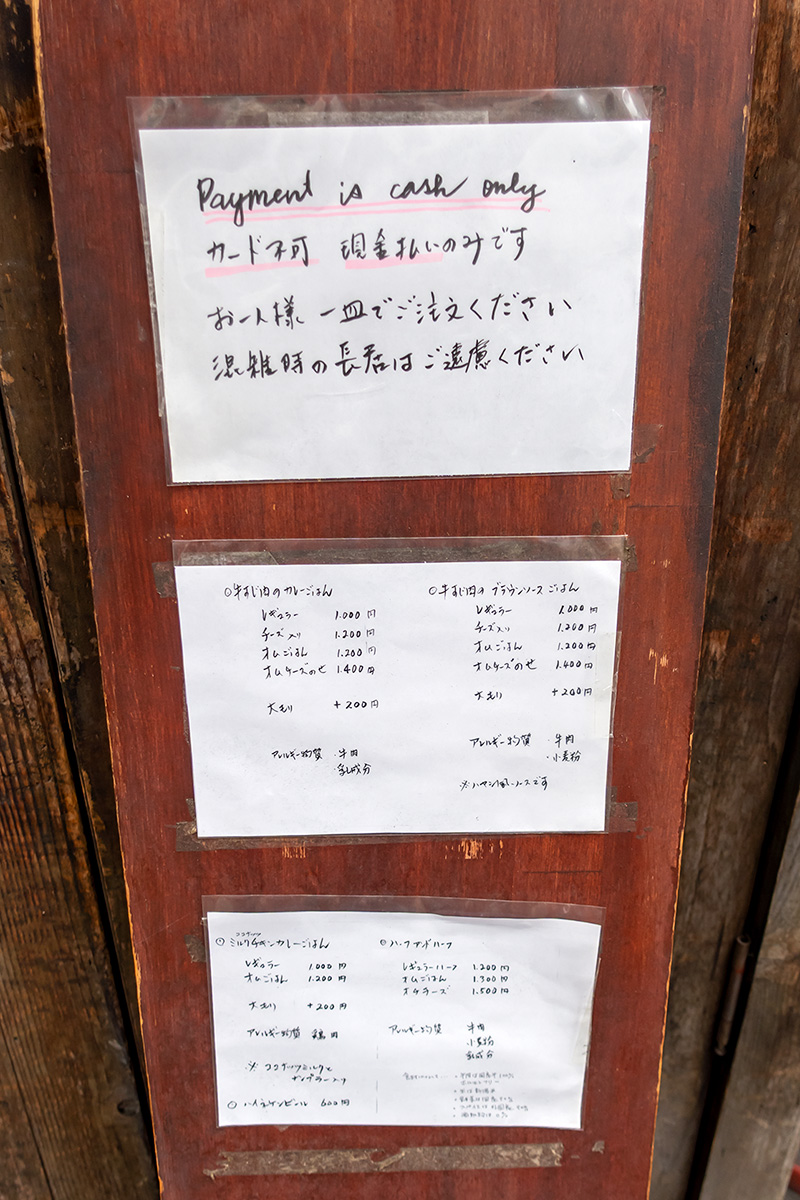 Payment is cash only
カード不可 現金払いのみです
お一人様 一皿でご注文ください
混雑時の長居はご遠慮ください
○牛すじ肉のカレーごはん
レギュラー 1.000円
チーズ入り 1.200円
オムごはん 1.200円
オムチーズのせ 1.400円
大もり +200円
アレルギー物質 ・牛肉
・乳成分
○牛すじ肉の ブラウンソースごはん
レギュラー 1.000円
チーズ入り 1.200円
オムごはん 1.200円
オムチーズのせ 1.400円
大もり +200円
アレルギー物質 ・牛肉
・小麦粉
※ハヤシ風ソースです
ココナッツ
○ミルクチキンカレーごはん
レギュラー 1.000円
オムごはん 1.200円
大もり +200円
アレルギー物質 鶏肉
※ココナッツミルクと
○ハイネケンビール 600円
○ハーフアンドハーフ
レギュラーハーフ 1.200円
オムごはん 1.300円
オムチーズ 1.500円
アレルギー物質 牛肉
小麦粉
乳成分